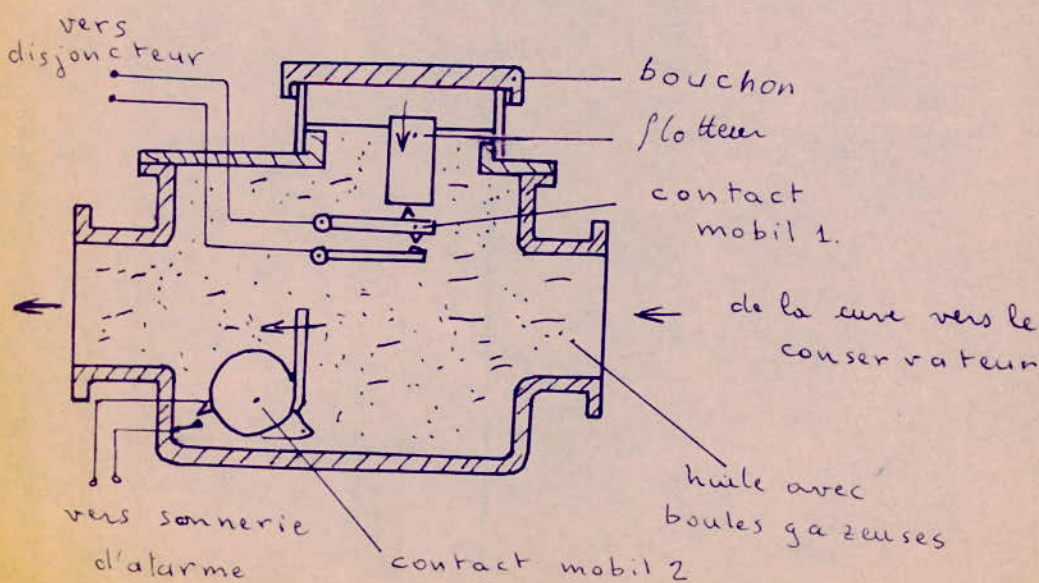 vers
disjoncteur
bouchon
flotteur
contact
mobil 1.
de la cuve vers le
conservateur
huile avec
boules gazeuses
vers sonnerie
d'alarme
contact mobil 2